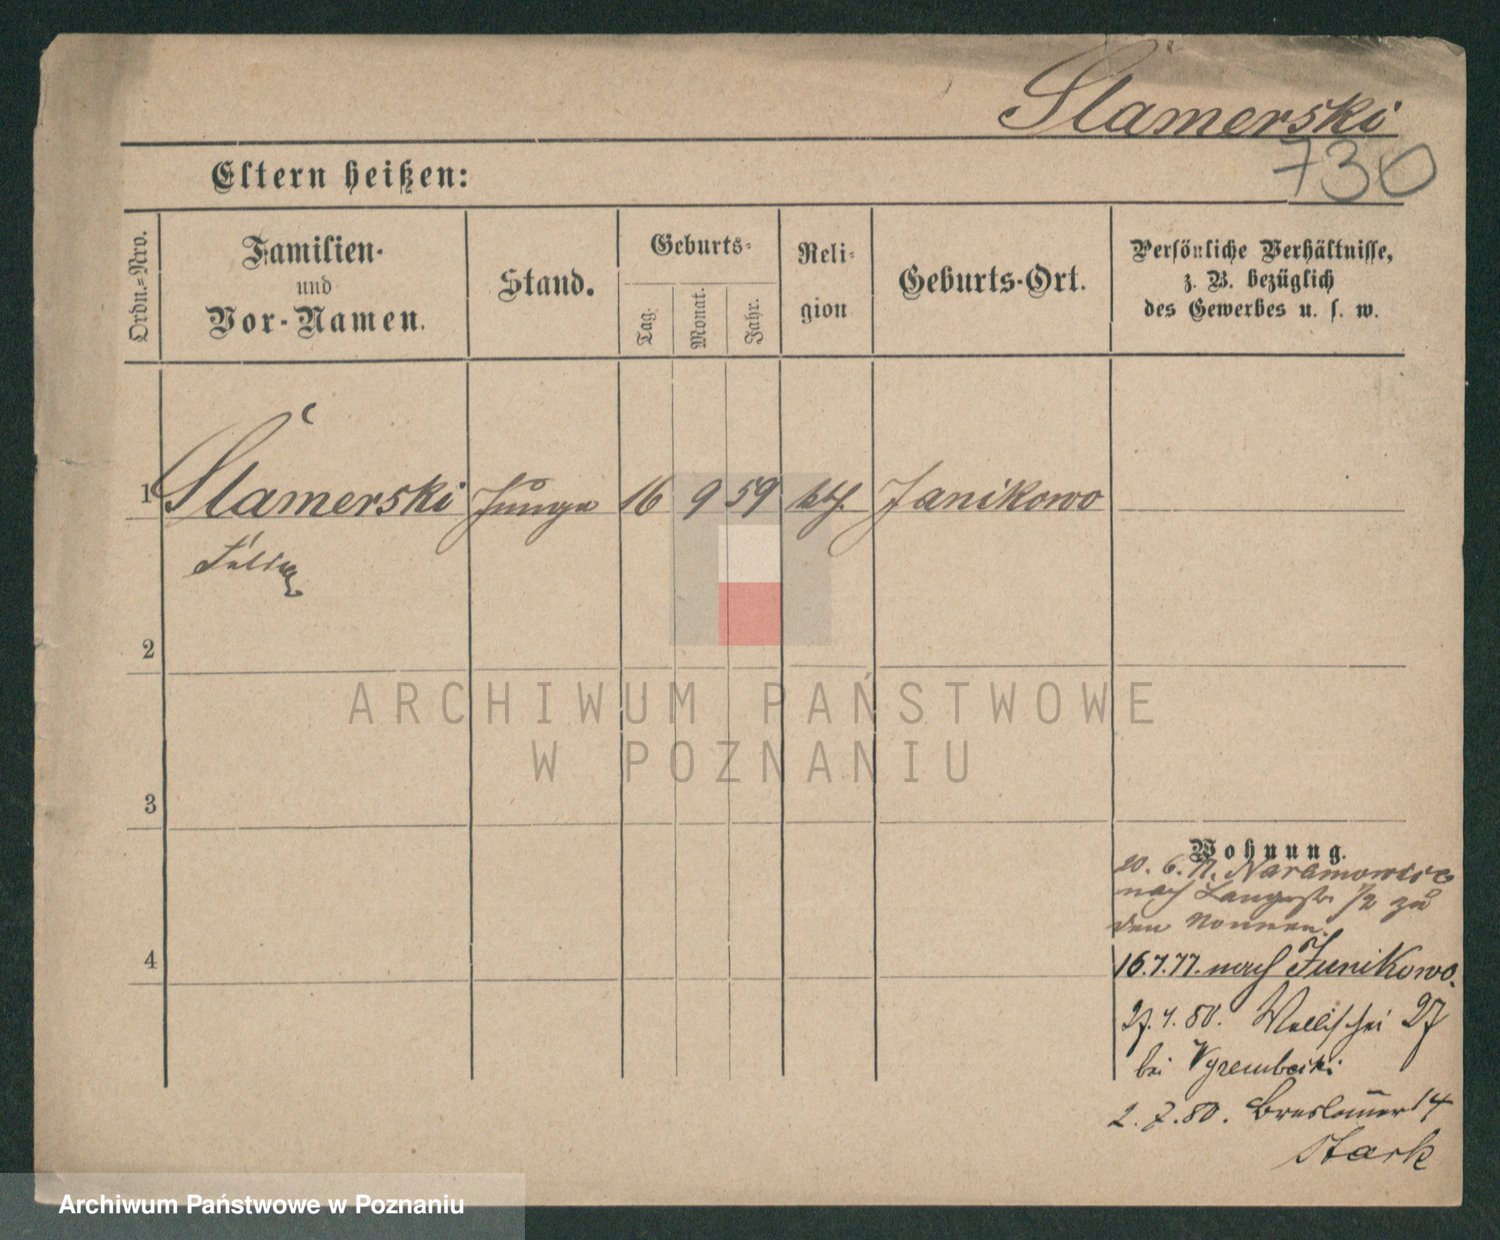 Slamerski
730
Eltern heißen:
Ordn.-Nro.
Familien-
und
Vor-Namen.
Stand.
Geburts-
Tag.
Monat.
Jahr.
Reli-
gion
Geburts-Ort.
Persönliche Verhältnisse,
z. B. bezüglich
des Gewerbes u. s. w.
1 Slamerski Junge 16 9 59 kth. Janikowo
2
3
4
Wohnung.
20. 6. 77. Naramowice
nach Langestr 1/2 zu
den Nonnen.
16.7.77. nach Junikowo.
27. 4. 80. Wallischei 27
bei
2. 7. 80. Breslauer 14
Stark
ARCHIWUM PAŃSTWOWE
W POZNANIU
Archiwum Państwowe w Poznaniu